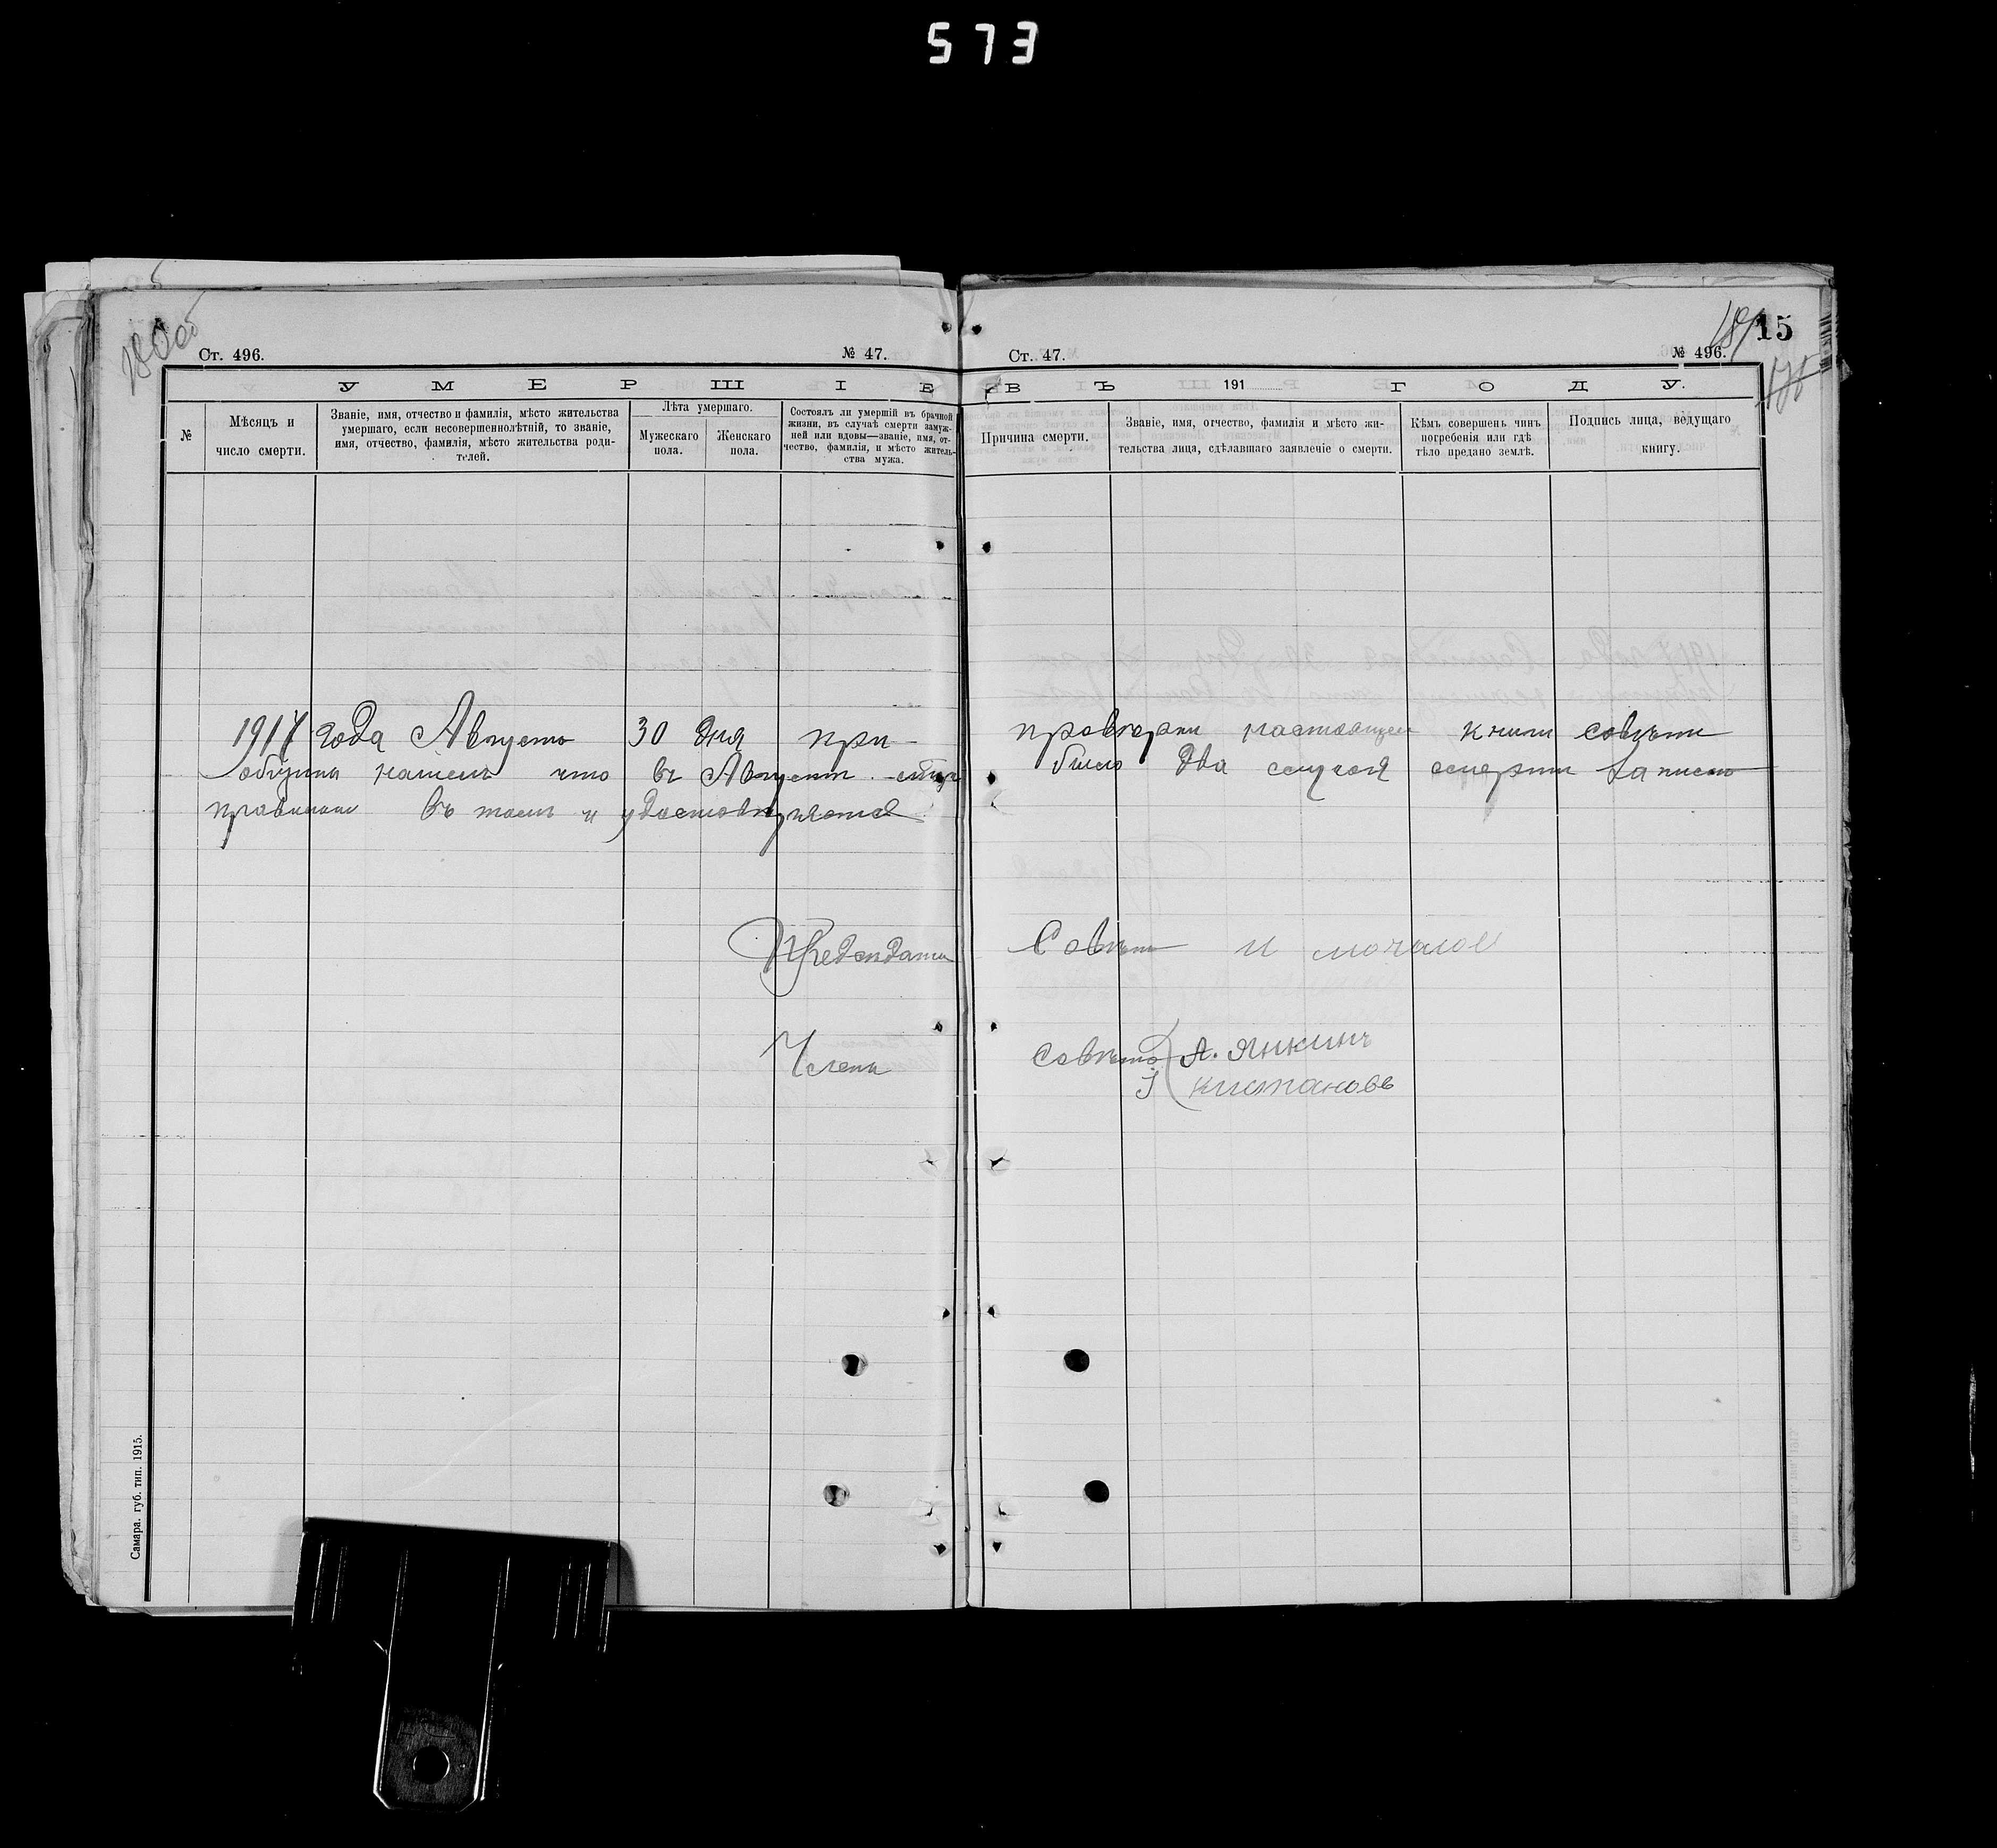 573
Ст. 496.
№ 47.
УМЕРШІЕ
№
Мѣсяцъ и
число смерти.
Званіе, имя, отчество и фамилія, мѣсто жительства
умершаго, если несовершеннолѣтній, то званіе,
имя, отчество, фамилія, мѣсто жительства роди-
телей.
Лѣта умершаго.
Мужескаго
пола.
Женскаго
пола.
Состоялъ ли умершій въ брачной
жизни, въ случаѣ смерти замуж-
ней или вдовы—званіе, имя, от-
чество, фамилія, и мѣсто житель-
ства мужа.
Ст. 47.
15
№ 496.
ВЪ 191 ГОДУ.
Причина смерти.
Званіе, имя, отчество, фамилія и мѣсто жи-
тельства лица, сдѣлавшаго заявленіе о смерти.
Кѣмъ совершенъ чинъ
погребенія или гдѣ
тѣло предано землѣ.
Подпись лица, ведущаго
книгу.
1917 года Августа 30 дня при провѣрки настоящей книги совѣтъ
общины что въ Августѣ было два случая смерти записано
правильно въ томъ и удостовѣряетъ
Совѣта И мочалов
Члены Совѣта А. Янкинъ
Самара. губ. тип. 1915.